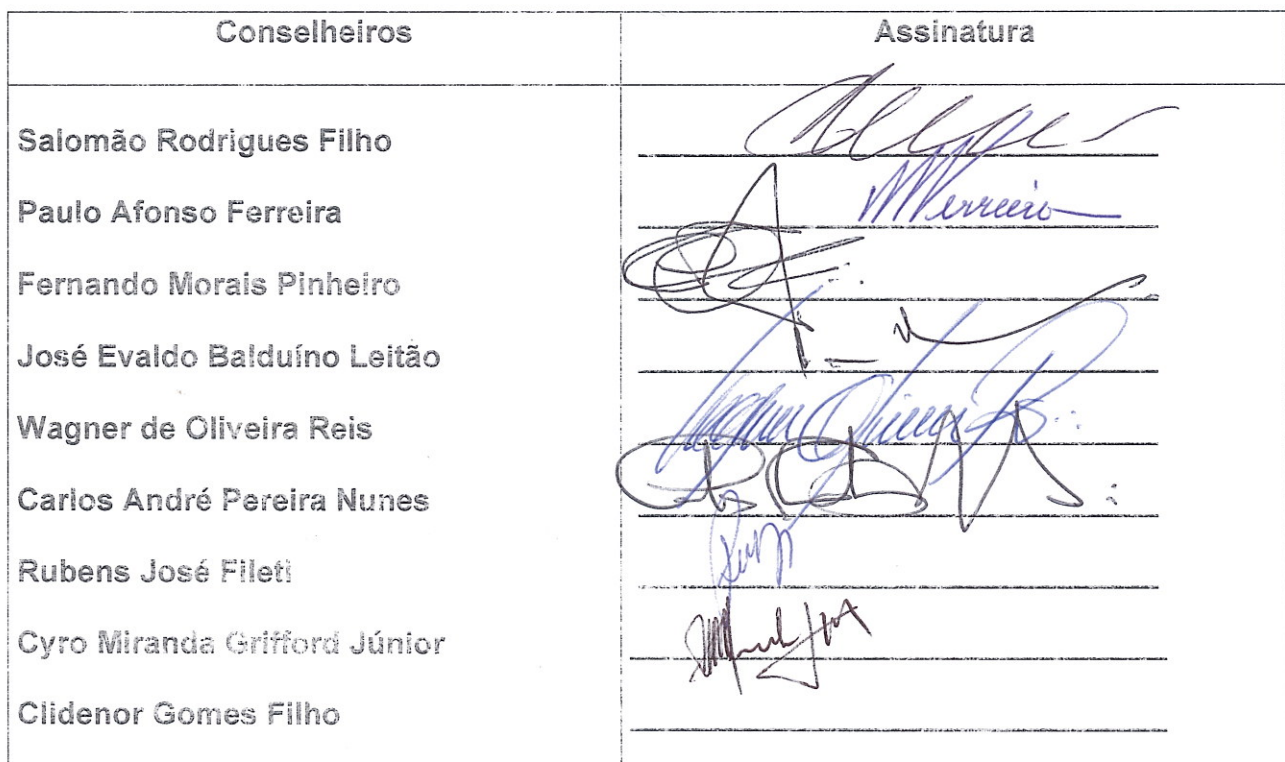 Conselheiros Assinatura
Salomão Rodrigues Filho
Paulo Afonso Ferreira
Fernando Morais Pinheiro
José Evaldo Balduíno Leitão
Wagner de Oliveira Reis
Carlos André Pereira Nunes
Rubens José Fileti
Cyro Miranda Grifford Júnior
Clidenor Gomes Filho